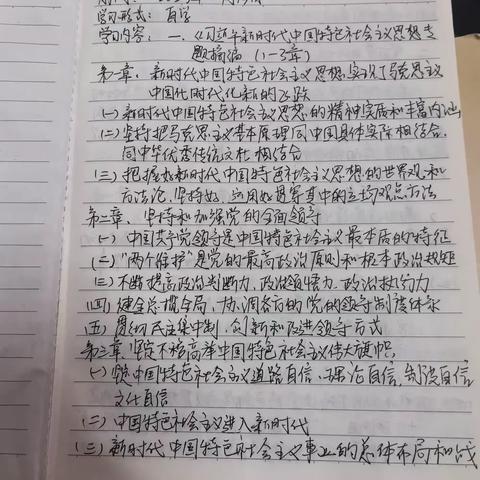 学习形式：自学
学习内容：一、《习近平新时代中国特色社会主义思想专
题摘编（1-3章）
第一章、新时代中国特色社会主义思想实现了马克思主义
中国化时代化新的飞跃
(一)新时代中国特色社会主义思想的精神实质和丰富内涵
(二)坚持把马克思主义基本原理同中国具体实际相结合、
同中华优秀传统文化相结合
(三)把握好新时代中国特色社会主义思想的世界观和
方法论，坚持好、运用好贯穿其中的立场观点方法
第二章、坚持和加强党的全面领导
(一)中国共产党领导是中国特色社会主义最本质的特征
(二)"两个维护"是党的最高政治原则和根本政治规矩
(三)不断提高政治判断力、政治领悟力、政治执行力
(四)健全总揽全局、协调各方的党的领导制度体系
(五)贯彻民主集中制，创新和改进领导方式
第三章、坚定不移高举中国特色社会主义伟大旗帜
(一)坚定中国特色社会主义道路自信、理论自信、制度自信、
文化自信
(二)中国特色社会主义进入新时代
(三)新时代中国特色社会主义事业的总体布局和战